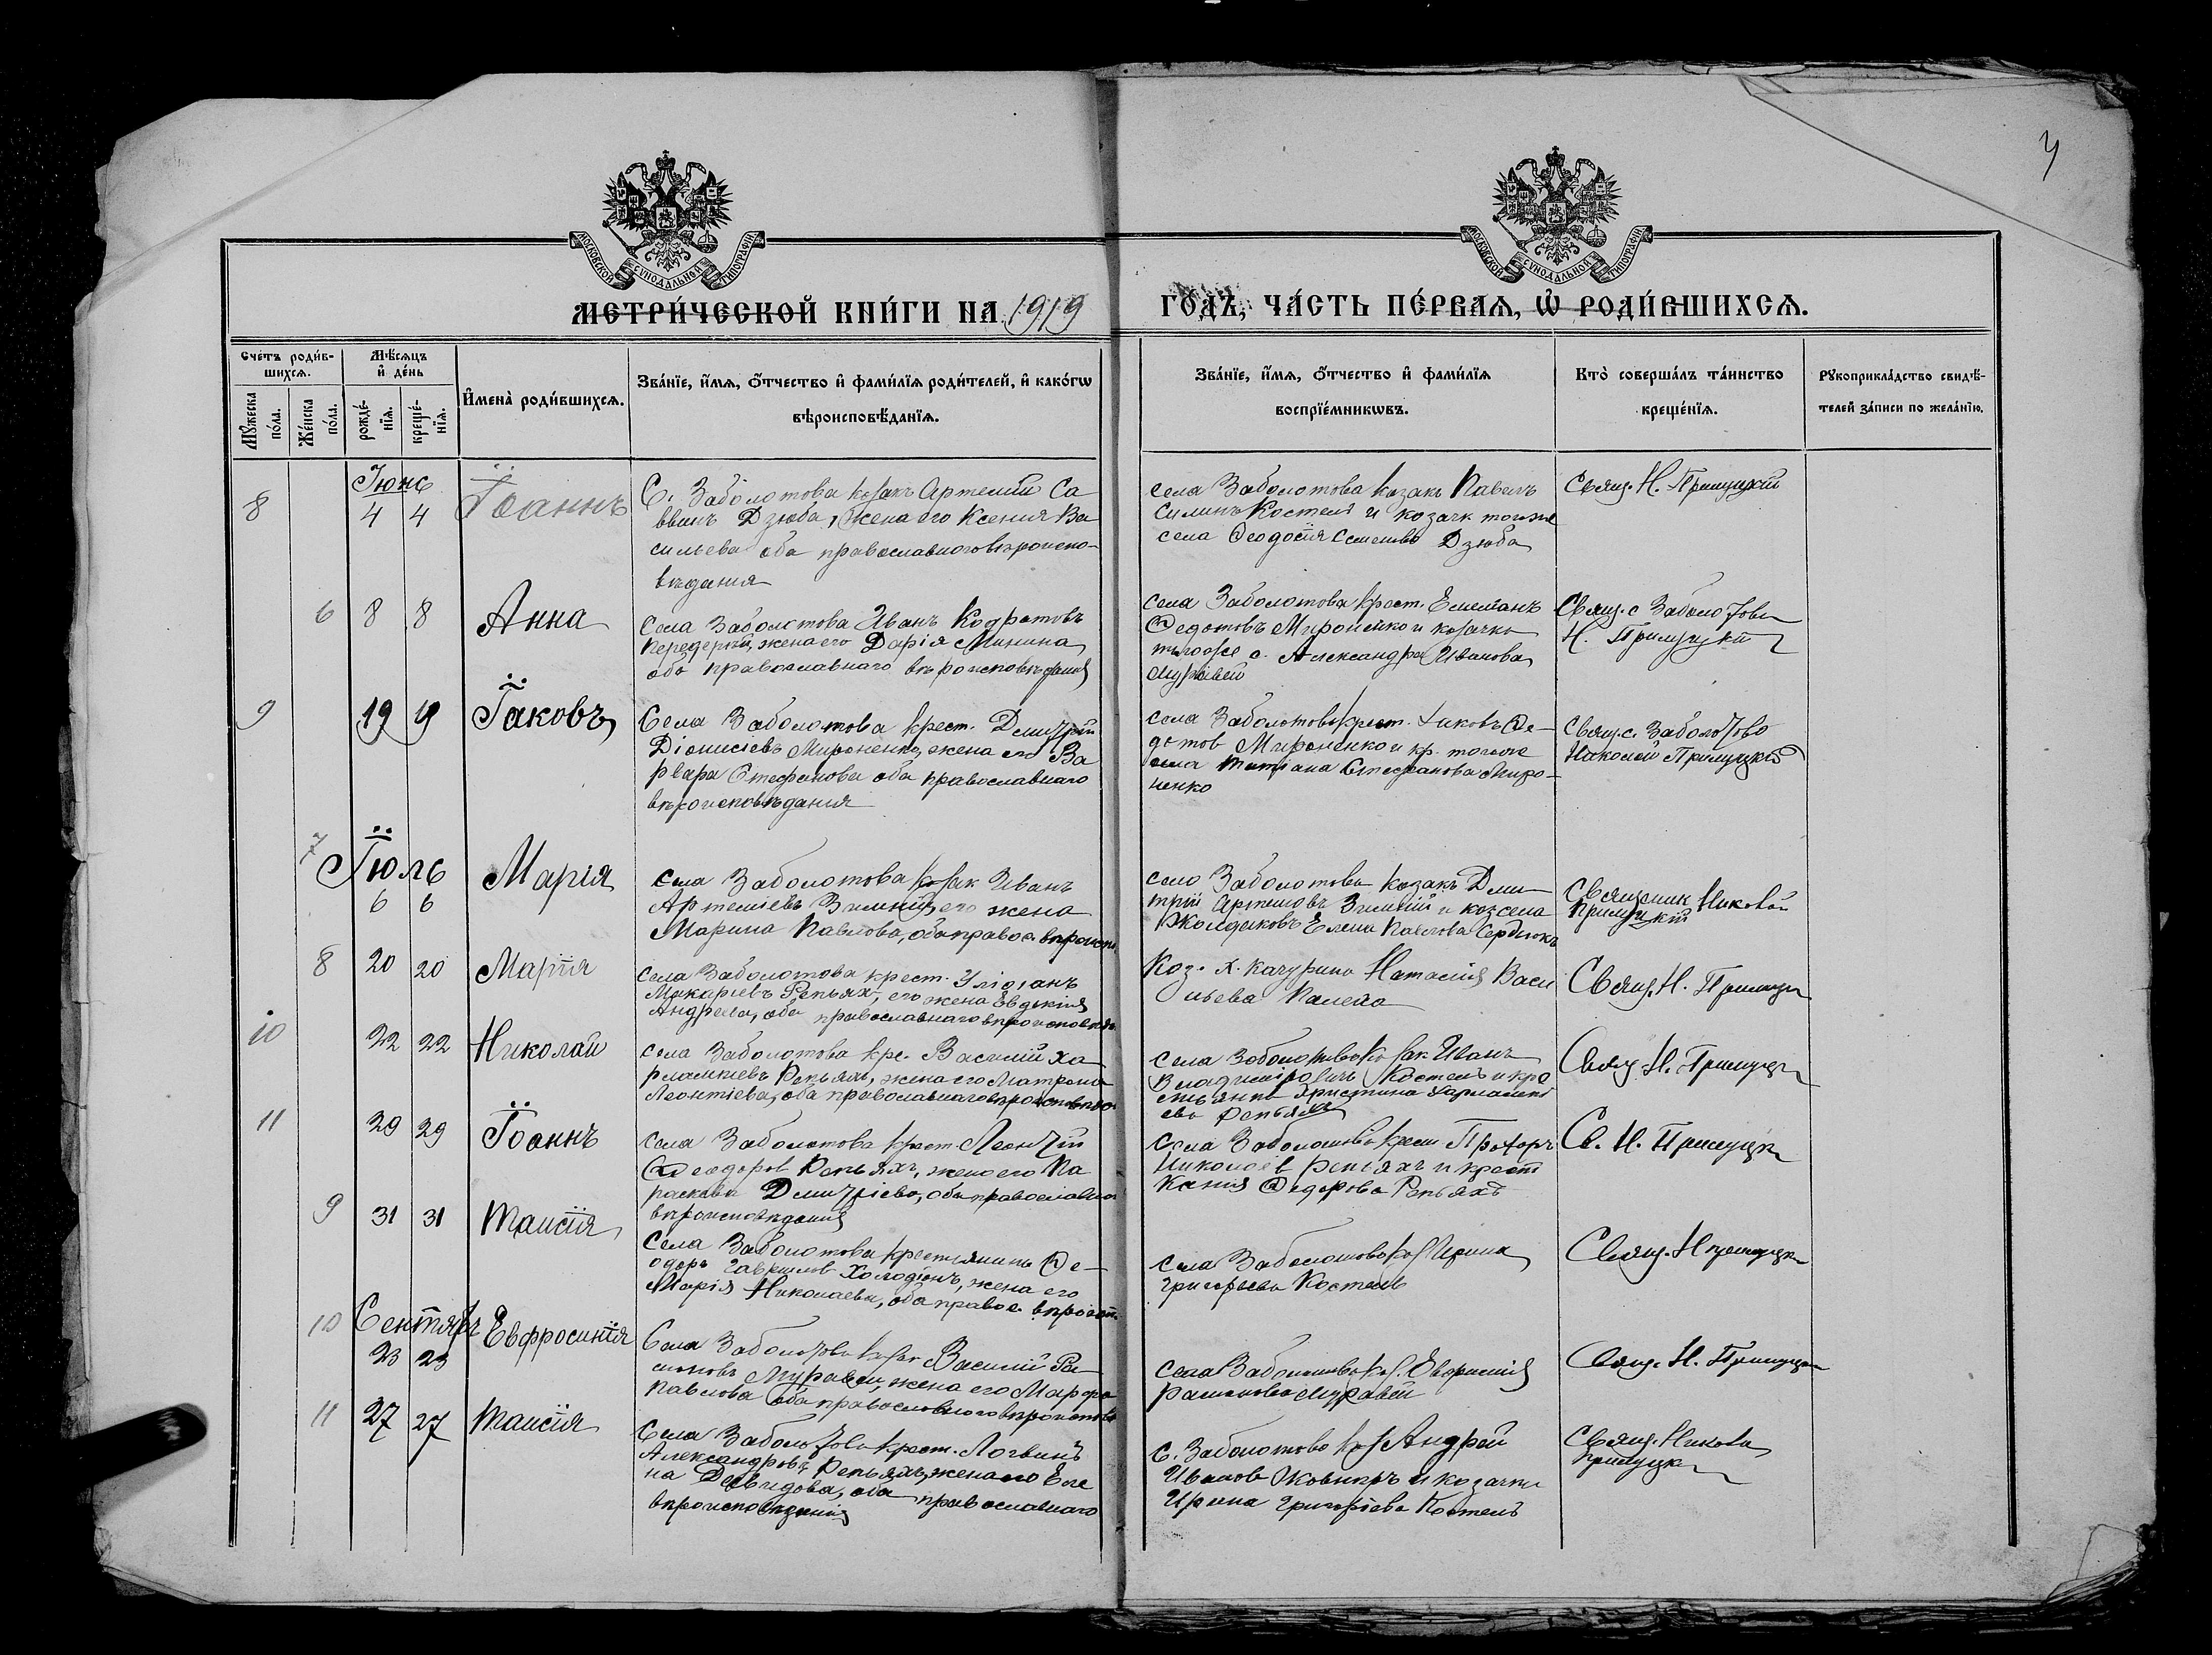 У
МОСКОВСКОЙ СѴНОДАЛЬНОЙ ТИПОГРАФІИ
МОСКОВСКОЙ СѴНОДАЛЬНОЙ ТИПОГРАФІИ
МЕТРИ́ЧЕСКОЙ КНИ́ГИ НА 1919 ГО́ДЪ, ЧА́СТЬ ПЕ́РВАѦ, Ѡ҆ РОДИ́ВШИХСѦ.
Сче́тъ роди́в-
шихсѧ.
Мꙋ́жеска
по́ла.
Же́нска
по́ла.
Мѣ́сѧцъ
и҆ де́нь
рожде́-
нїѧ.
креще́-
нїѧ.
И҆мена̀ роди́вшихсѧ.
Зва́нїе, и҆́мѧ, ѻ҆́тчество и҆ фами́лїѧ роди́телей, и҆ како́гѡ
вѣроисповѣ́данїѧ.
Зва́нїе, и҆́мѧ, ѻ҆́тчество и҆ фами́лїѧ
воспрїе́мникѡвъ.
Кто̀ соверша́лъ та́инство
креще́нїѧ.
Рꙋкоприкла́дство свидѣ́-
телей за́писи по жела́нїю.
Іюнь
8 4 4 Іоаннъ
С. Заболотова козакъ Артемій Са
ввинъ Дзюба, жена его Ксения Ва
сильева оба православного вѣроиспо-
вѣдания
села Заболотова козакъ Павелъ
Силинъ Костель и козачк тогоже
села Феодосія Семенова Дзюба
Свящ. Н. Прилуцкій
6 8 8 Анна
Села Заболотова Иванъ Кодратовъ
жена его Дарія Минина
оба православнаго вѣроисповѣдания
села Заболотова крест. Емельянъ
Федотовъ Мироненко и козачка
тогоже с. Александра Иванова
Муравей
Свящ. с Заболотова
Н. Прилуцкій
9 19 19 Іаковъ
Села Заболотова крест. Дмитрій
Діонисіевъ Мироненко, жена его Ва
рвара Стефанова оба православнаго
вѣроисповѣдания
села Заболотова крест. Яковъ Фе-
дотов Мироненко и кр. тогоже
села Татіана Стефанова Миро-
ненко
Свящ. с. Заболотово
Николай Прилуцкій
Іюль
7 6 6 Марія
села Заболотова козак Иванъ
Артеміевъ Зимній, его жена
Марина Павлова, оба правос. вѣроисп.
село Заболотова козакъ Дми
трій Артемовъ Зимній и коз села
Жолдаковъ Елена Павлова Сердюкъ
Священик Николай
Прилуцкій
8 20 20 Марія
села Заболотова крест. Уліянъ
Макаріевъ Репьях, его жена Евдокія
Андреева, оба православнаго вѣроисповѣд.
Коз. х. Качурина Наталія Васи
льева Палей
Свящ. Н. Прилуцк
10 22 22 Николай
села Заболотова кре. Василій Ха
рлампіевъ Репьяхъ, жена его Матрона
Леонтіева, оба православнаго вѣроисповѣд
села Заболотова козак Иванъ
Владиміровичъ Костель и кре
стьянка Христина Харлампі
ева Репьяхъ
Свящ. Н. Прилуцк
11 29 29 Іоаннъ
села Заболотова крест. Леонтій
Феодоров Репьяхъ, жена его Па
раскева Дмитріева, оба православна
вѣроисповѣдания
села Заболотова крест Прохоръ
Николаев Репьяхъ и крест
Ксенія Федорова Репьяхъ
Св. Н. Прилуцк
9 31 31 Таисія
Села Заболотова крестьянинъ Фе-
одоръ Гаврилов Холодіонъ, жена его
Марія Николаева, оба правос. вѣроисп.
села Заболотова коз Ирина
Григорьева Костель
Свящ. Н Прилуцк
Сентябр
10 23 23 Евфросинія
Села Заболотова козак Василій Ра
Муравей, жена его Марфа
Павлова оба православного вѣроиспов
села Заболотова коз. Евфросинія
Муравей
Свящ. Н. Прилуцк
11 27 27 Таисія
Села Заболотова крест. Логвинъ
Александровъ Репьяхъ, жена его Еле
на Давидова, оба православнаго
вѣроисповѣдания
С. Заболотово коз Андрей
Иванов и козачка
Ирина Григоріева Костель
Свящ. Никола
Прилуцк